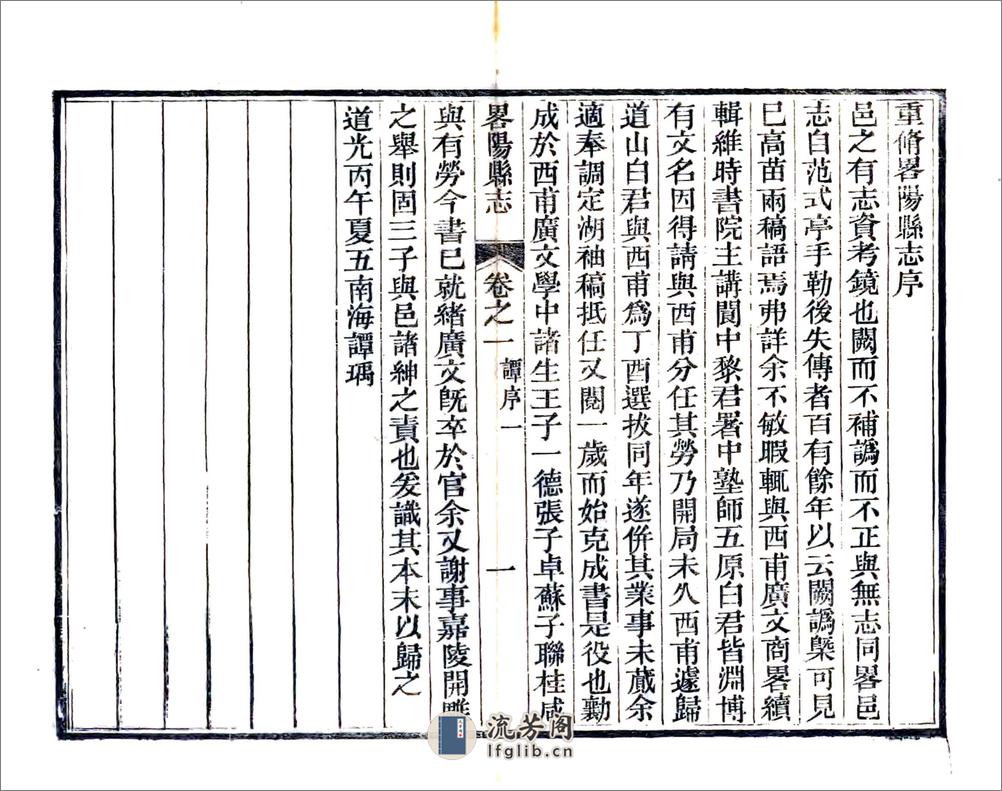 重脩畧陽縣志序
邑之有志資考鏡也闕而不補譌而不正與無志同畧邑
志自范式亭手勒後失傳者百有餘年以云闕譌槩可見
巳高苗兩稿語焉弗詳余不敏暇輒與西甫廣文商畧續
輯維時書院主講閬中黎君署中塾師五原白君皆淵博
有文名因得請與西甫分任其勞乃開局未久西甫遽歸
道山白君與西甫爲丁酉選拔同年遂併其業事未蕆余
適奉調定湖袖稿抵任又閱一歲而始克成書是役也勷
成於西甫廣文學中諸生王子一德張子卓蘇子聯桂咸
畧陽縣志
卷之一
譚序一
一
與有勞今書巳就緒廣文旣卒於官余又謝事嘉陵開雕
之舉則固三子與邑諸紳之責也爰識其本末以歸之
道光丙午夏五南海譚瑀
流芳阁
lfglib.cn